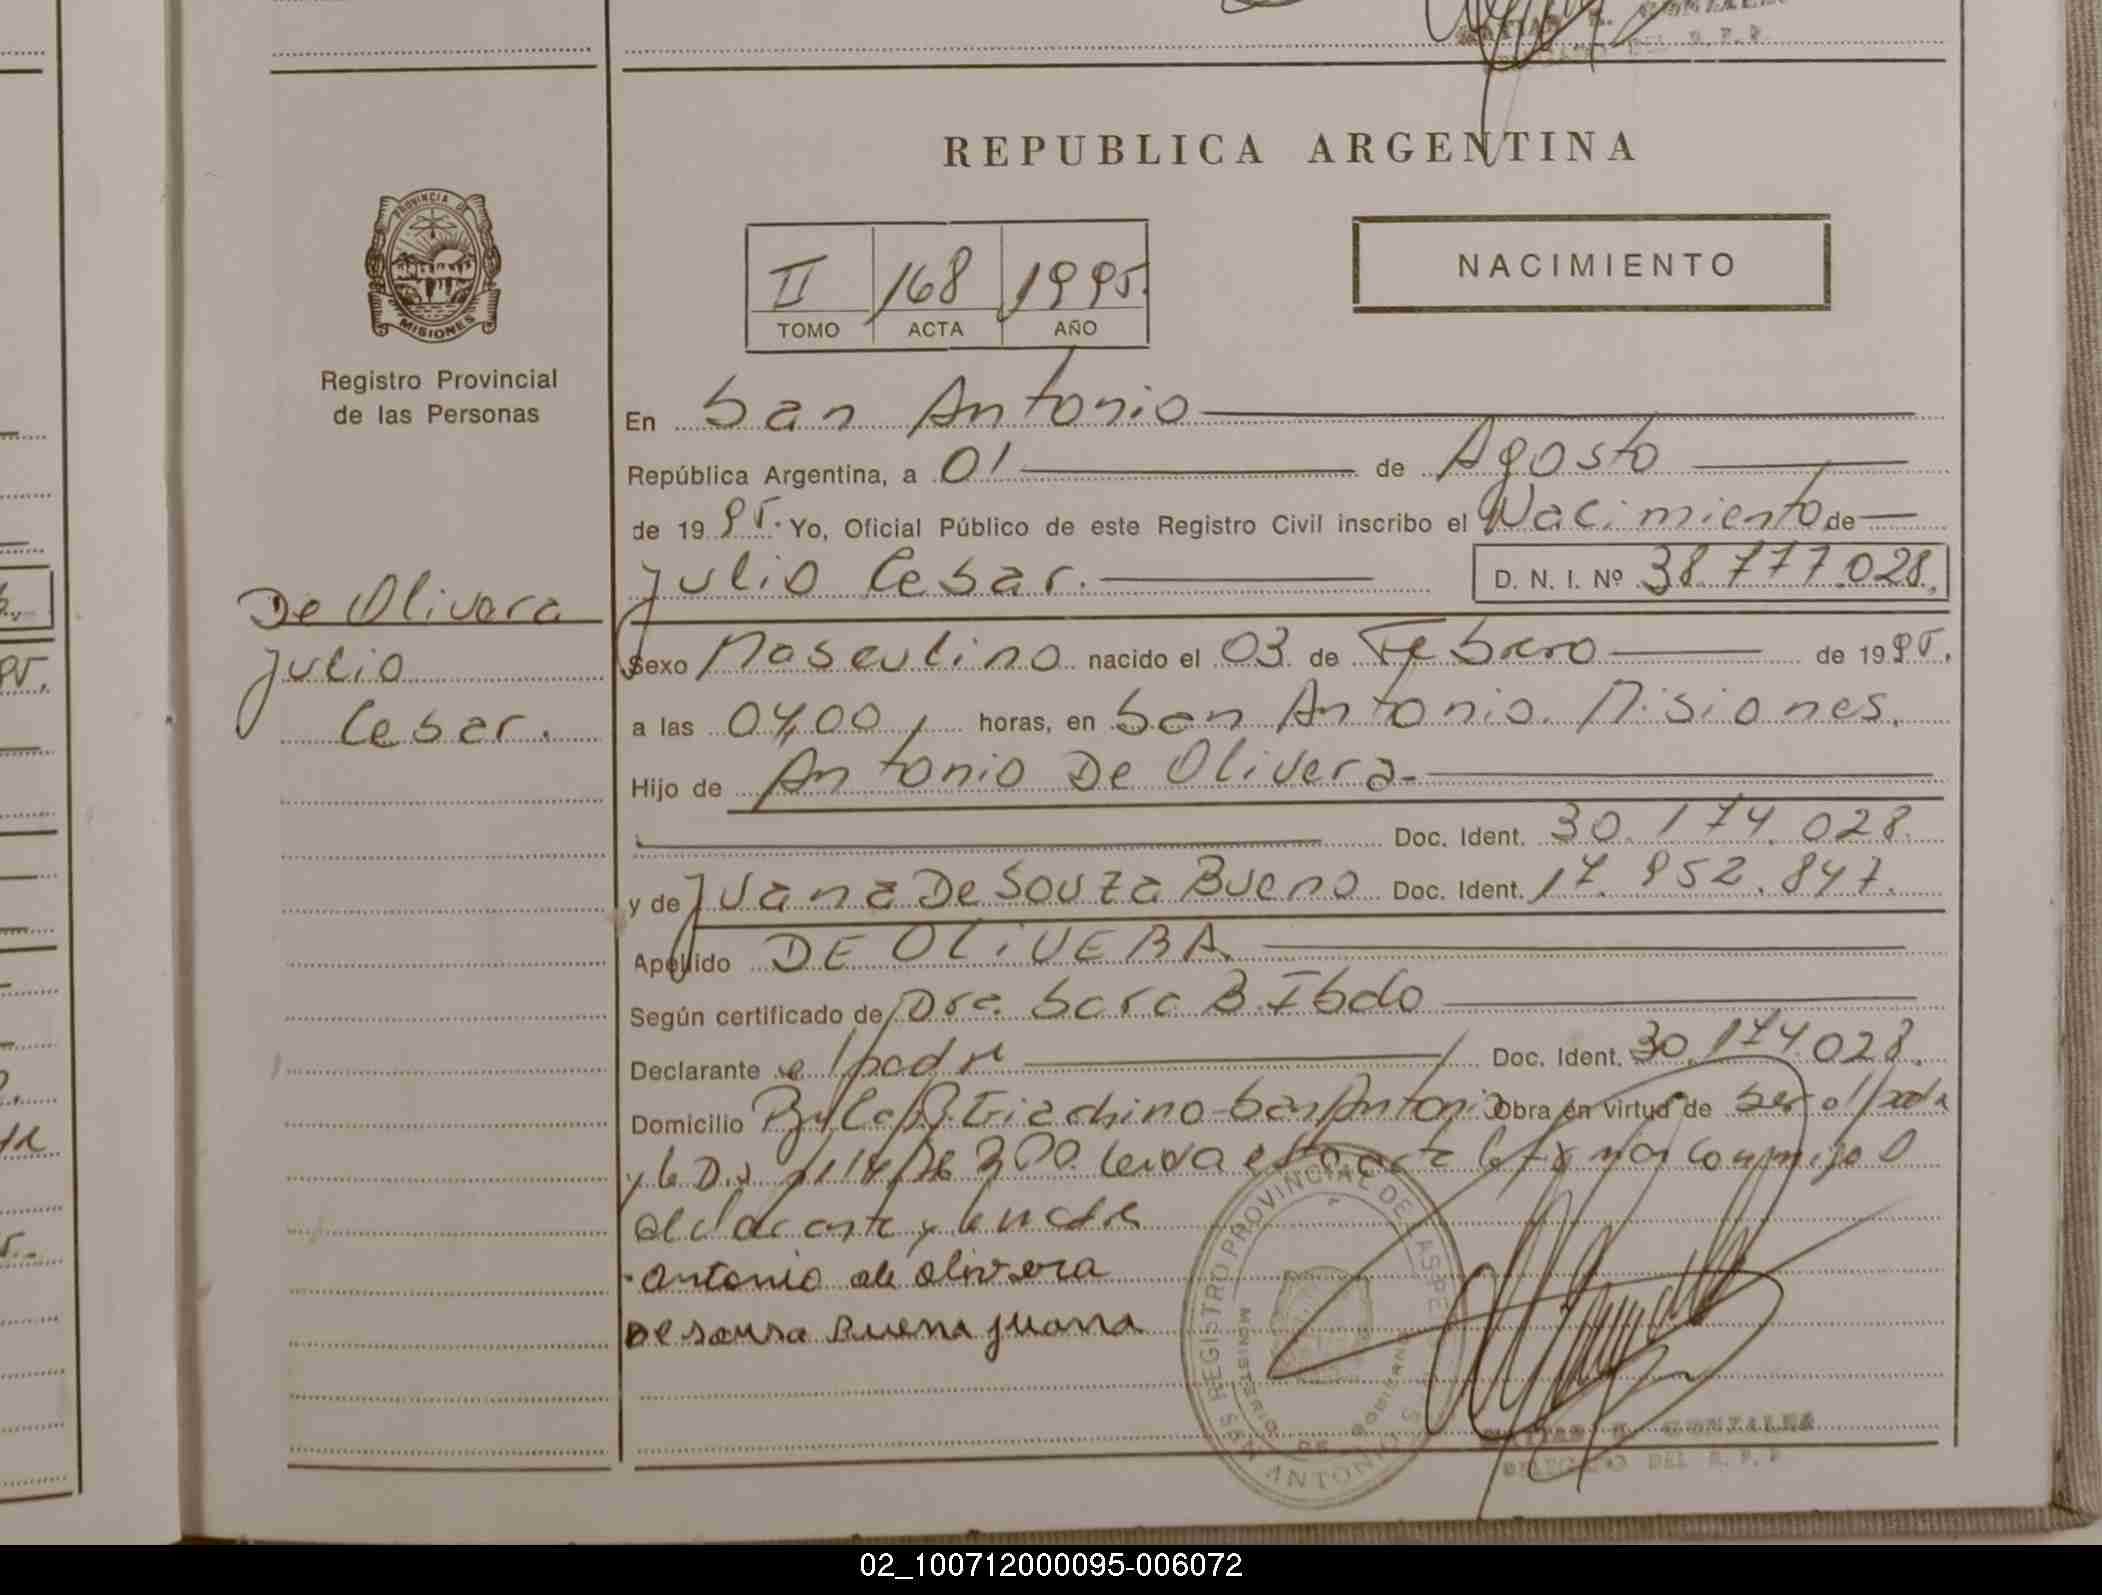 REPUBLICA ARGENTINA
PROVINCIA DE
MISIONES
Registro Provincial
de las Personas
II 168 1995.
TOMO ACTA AÑO
NACIMIENTO
En San Antonio
República Argentina, a 01 de Agosto
de 1995. Yo, Oficial Público de este Registro Civil inscribo el Nacimiento de
Julio Cesar. D. N. I. Nº 38.777.028.
De Olivera
Julio
Cesar.
Sexo Masculino nacido el 03 de Febrero de 1995.
a las 04,00 horas, en San Antonio. Misiones.
Hijo de Antonio De Olivera
Doc. Ident. 30.174.028.
y de Juana De Souza Bueno Doc. Ident. 17.952.847.
Apellido DE OLIVERA
Según certificado de Dra. Sara B.
Declarante el padre Doc. Ident. 30.174.028.
Domicilio San Antonio Obra en virtud de ser el padre
y la leida esta acta la conmigo el
declarante y la madre
Antonio de olivera
De sousa Buena juana
REGISTRO PROVINCIAL DE LAS PERS
MINISTERIO DE GOBIERNO
SAN ANTONIO
GONZALEZ
DEL R. P. P.
02_100712000095-006072